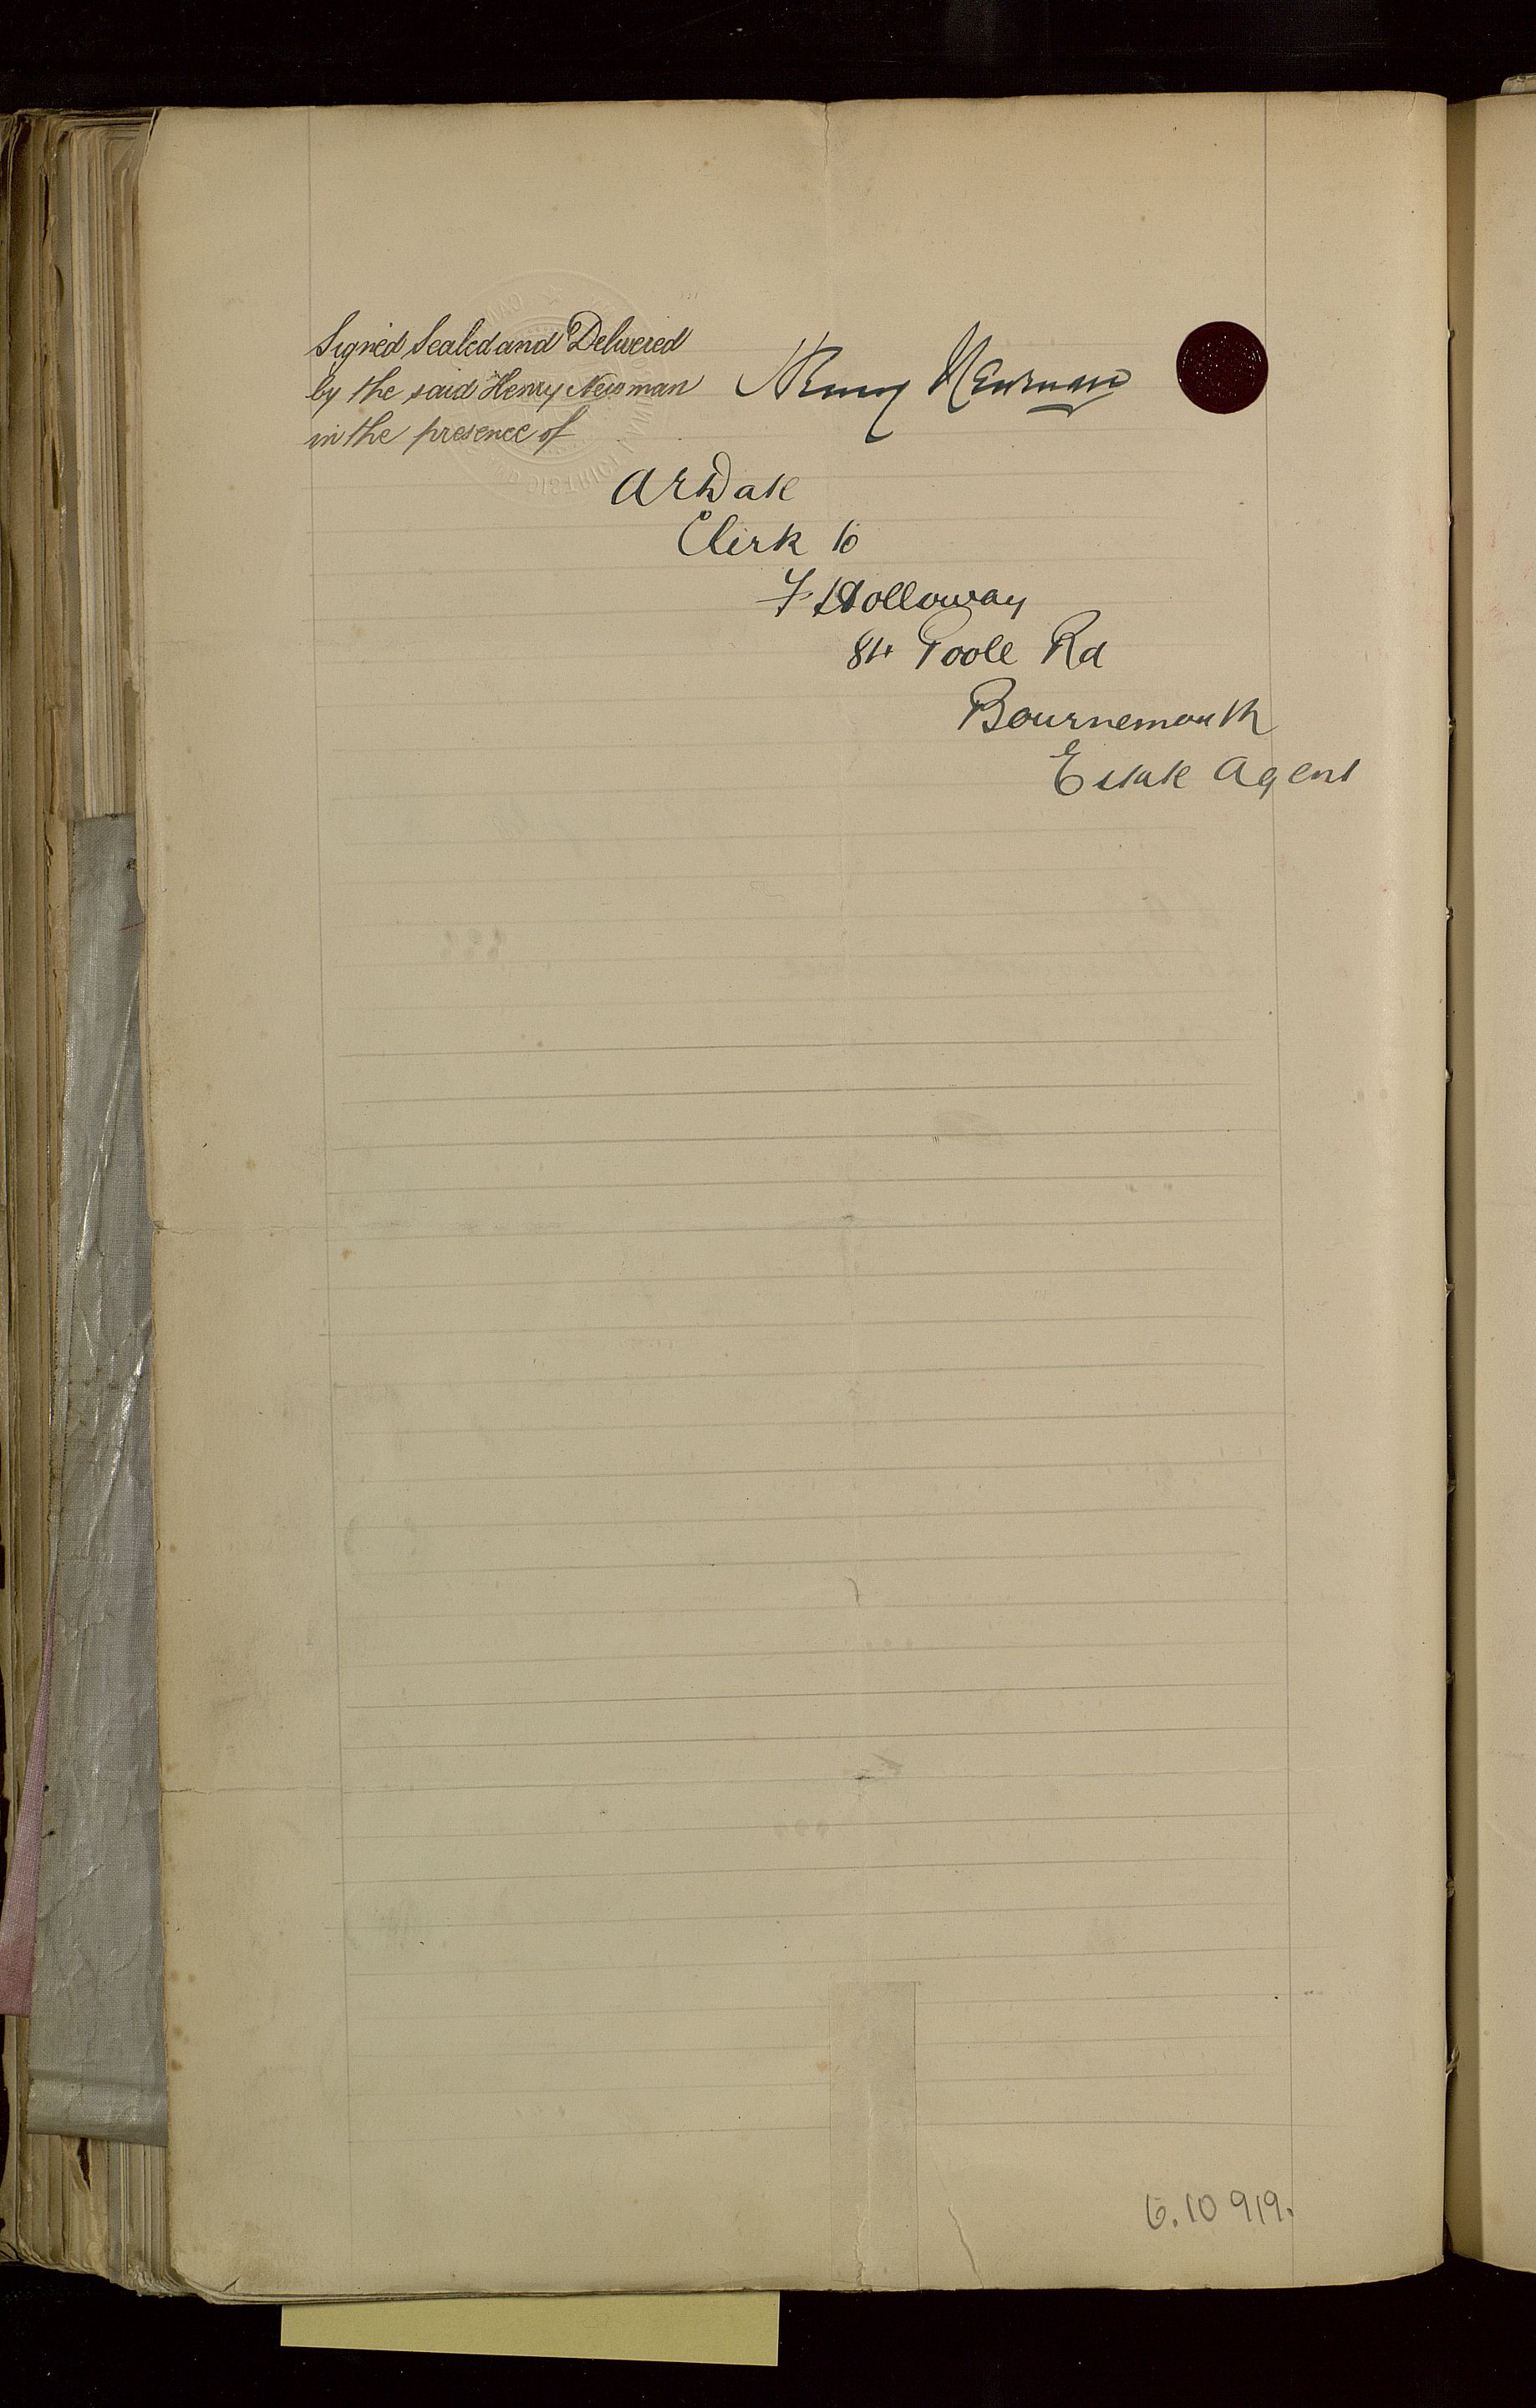 Signed Sealed and Delivered
by the said Henry Newman
in the presence of
Henry Newman
A E Dale
Clerk to
F. Holloway
84 Poole Rd
Bournemouth
Estate Agent
6.10 919.